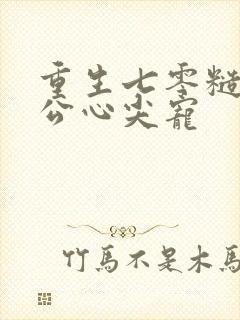 重生七零糙
公心尖宠
竹馬不是木馬